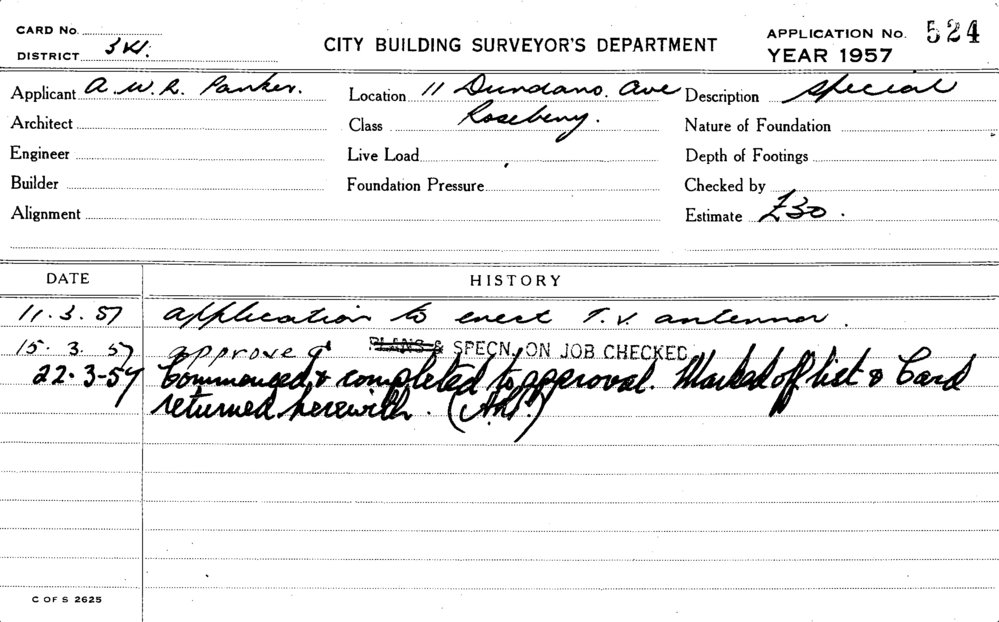 CARD No.
DISTRICT
CITY BUILDING SURVEYOR'S DEPARTMENT
APPLICATION No. 524
YEAR 1957
Applicant A. W. R. Parker. Location 11 Dundano. Ave Description Special
Architect Class Rosebery. Nature of Foundation
Engineer Live Load Depth of Footings
Builder Foundation Pressure Checked by
Alignment Estimate £30.
DATE HISTORY
11.3.57 application to erect T.V. antennor.
15.3.57 approved PLANS & SPECN. ON JOB CHECKED
22-3-57 Commenced & completed to approval. Marked off list & Card
returned herewith.
C OF S 2625